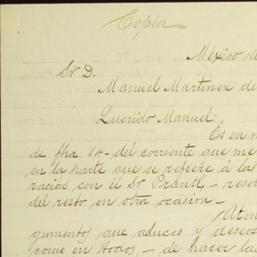 Copia
México de
Sr D.
Manuel Martinez de
Querido Manuel.
Es en m
de fha 14- del corriente que me
en la parte que se refiere á las
ración con el Sr Prantl, - reser
del resto en otra ocasion-
Aten
gumentos que aduces y deseos
como en todos, - de hacer las